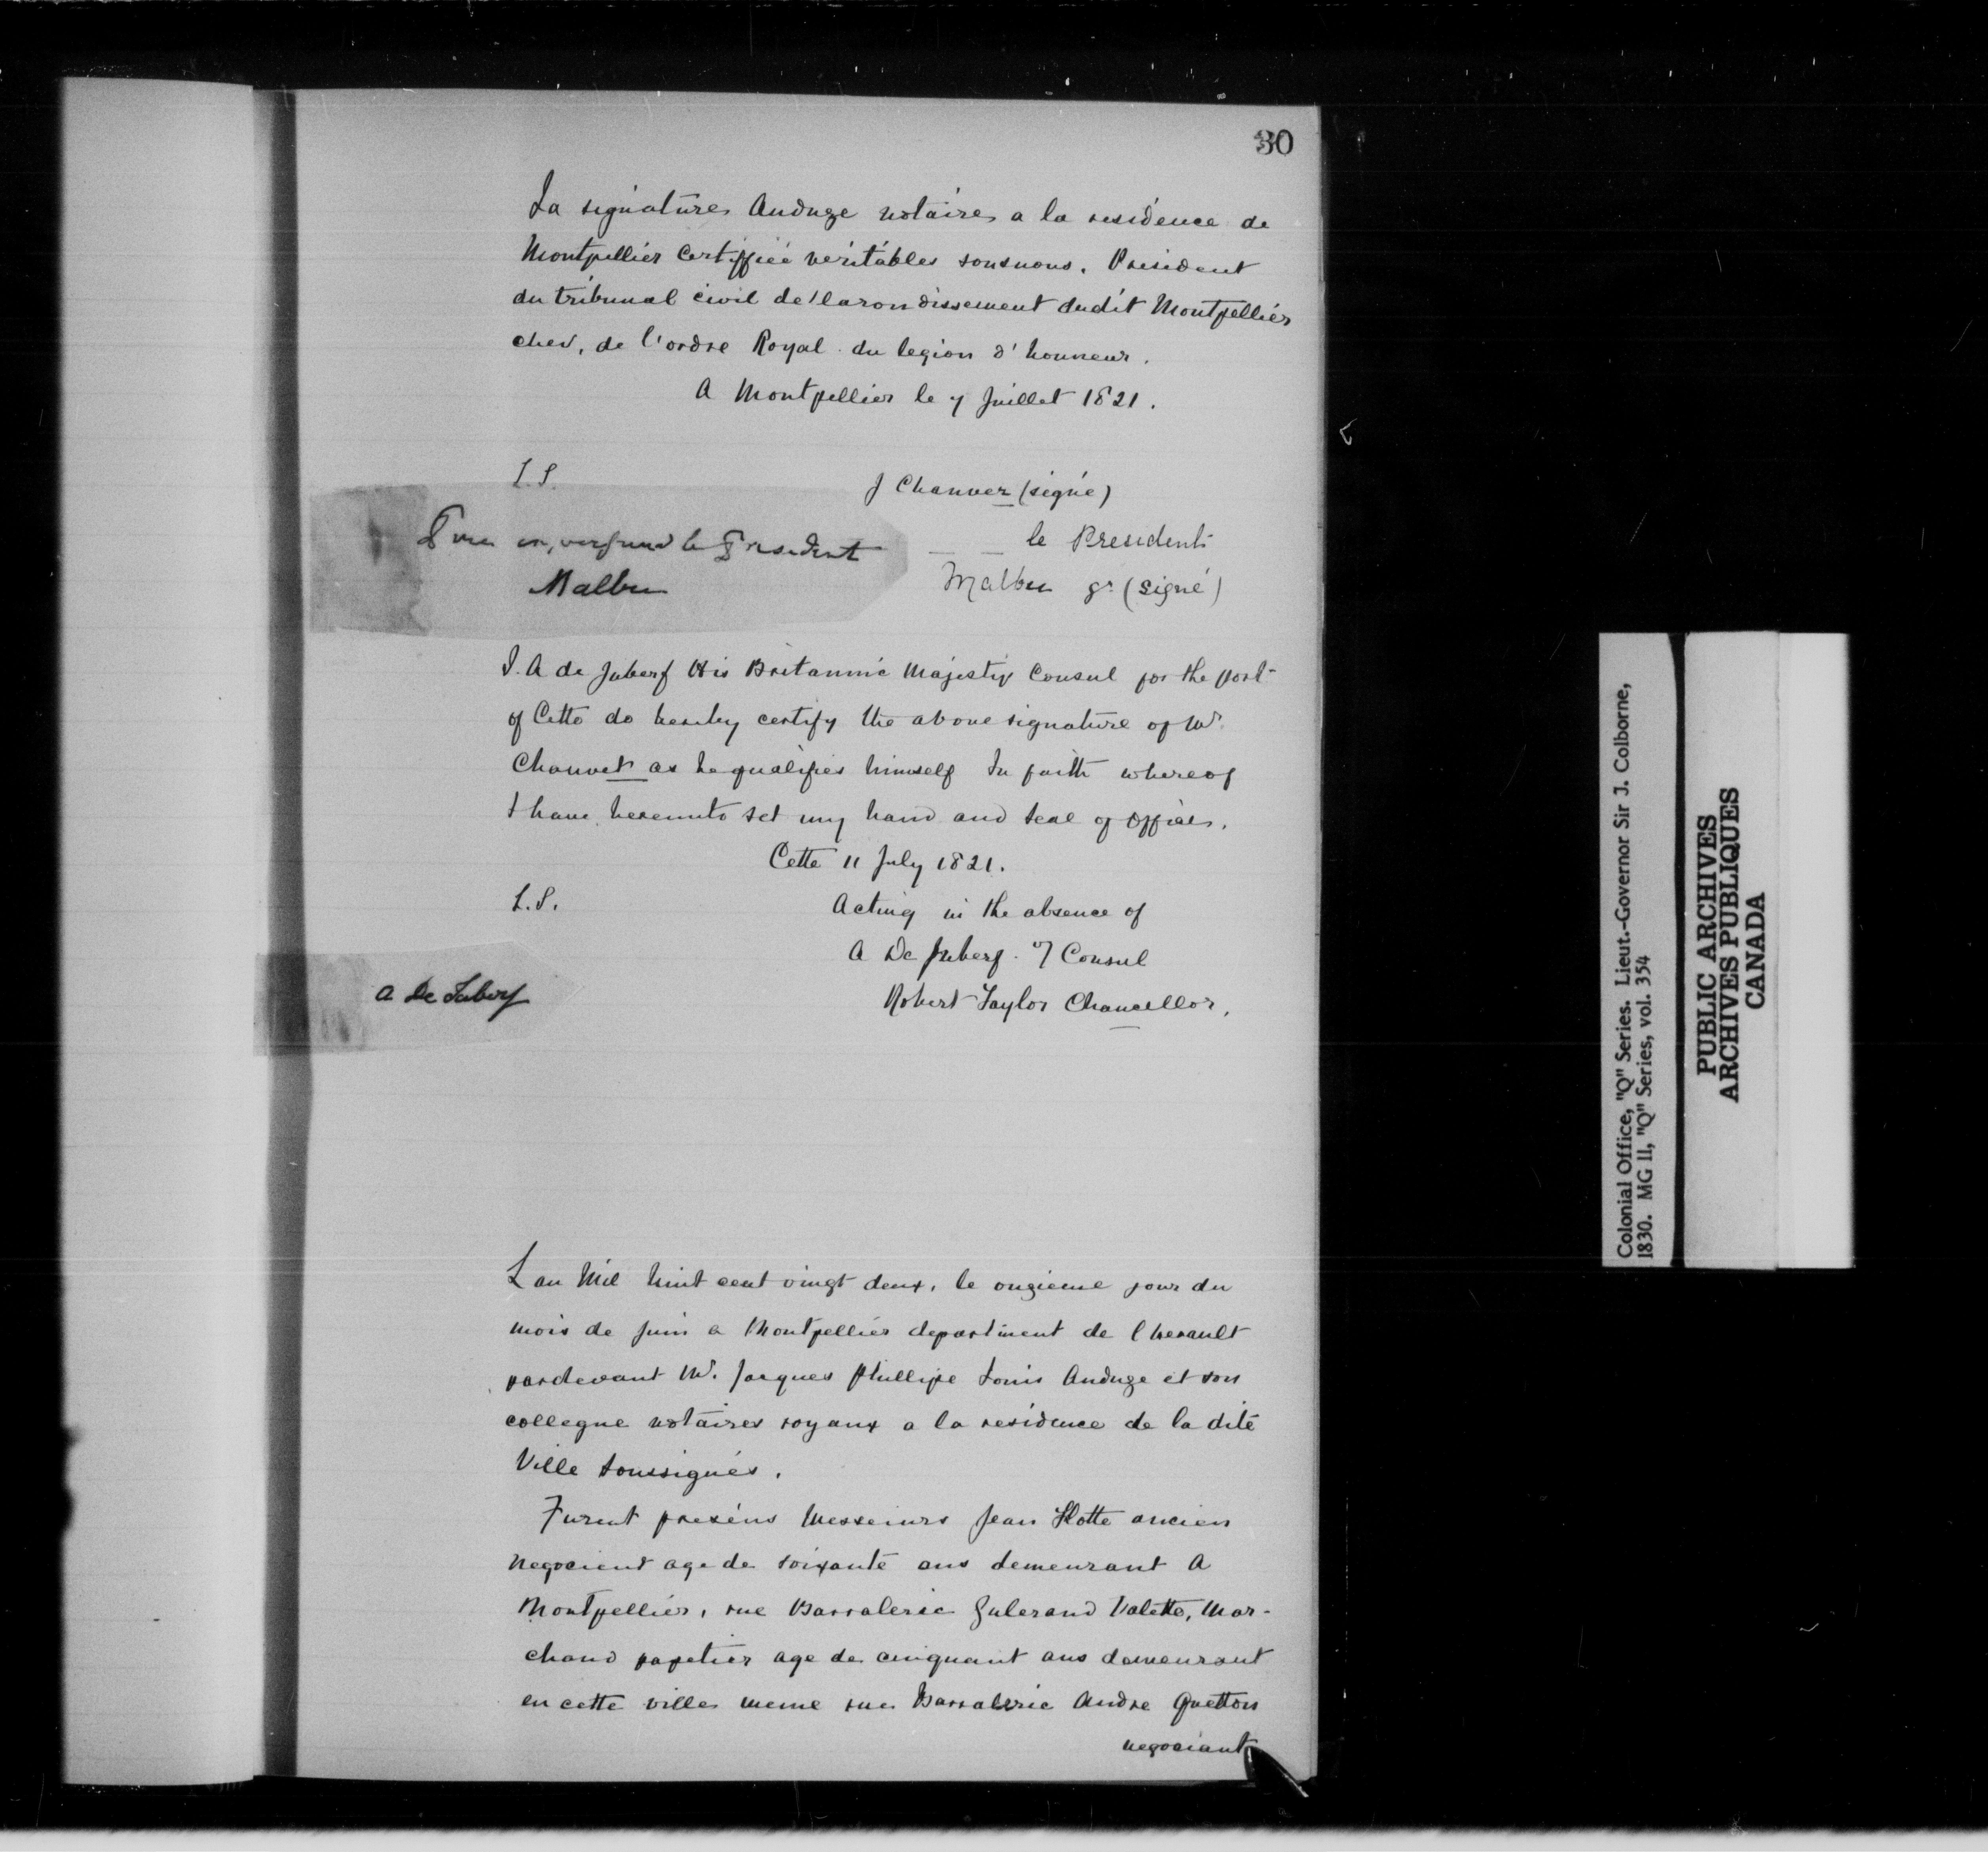 30
La signature Anduze notaire a la residence de
Montpellier Certiffiée véritables sousnous. President
du tribunal civil de larondissement dudit Montpellier
chev. de l'ordre Royal du legion d'honneur.
A Montpellier le 7 Juillet 1821.
L.S.
J Chauvez (signé)
le President
le President
Malbu
Malbu gr (signé)
I. A de Juberf His Britannic Majesty Consul for the port
of Cette do hereby certify the above signature of Mr.
Chauvet as he qualifies himself In faith whereof
I have hereunto set my hand and seal of office.
Cette 11 July 1821.
L.S.
Acting in the absence of
A De Juberf. Consul
A De Juberf
Robert Taylor Chancellor.
L an Mil huit cent vingt deux, le onzieme jour du
mois de Juin a Montpellier department de l herault
pardevant Mr. Jacques Phillipe Louis Anduze et son
collegue notaires royaux a la residence de la dite
Ville soussignés.
Furent presens Messeiurs Jean Flotte ancien
negocient age de soixante ans demeurant A
Montpellier, rue Barralerie Gulerand Valette, Mar-
chand papetier age de cinquant ans demeurant
en cette ville meme rue Barralerie Andre Quetton
negociant
Colonial Office, "Q" Series. Lieut.-Governor Sir J. Colborne,
1830. MG 11, "Q" Series, vol. 354
PUBLIC ARCHIVES
ARCHIVES PUBLIQUES
CANADA